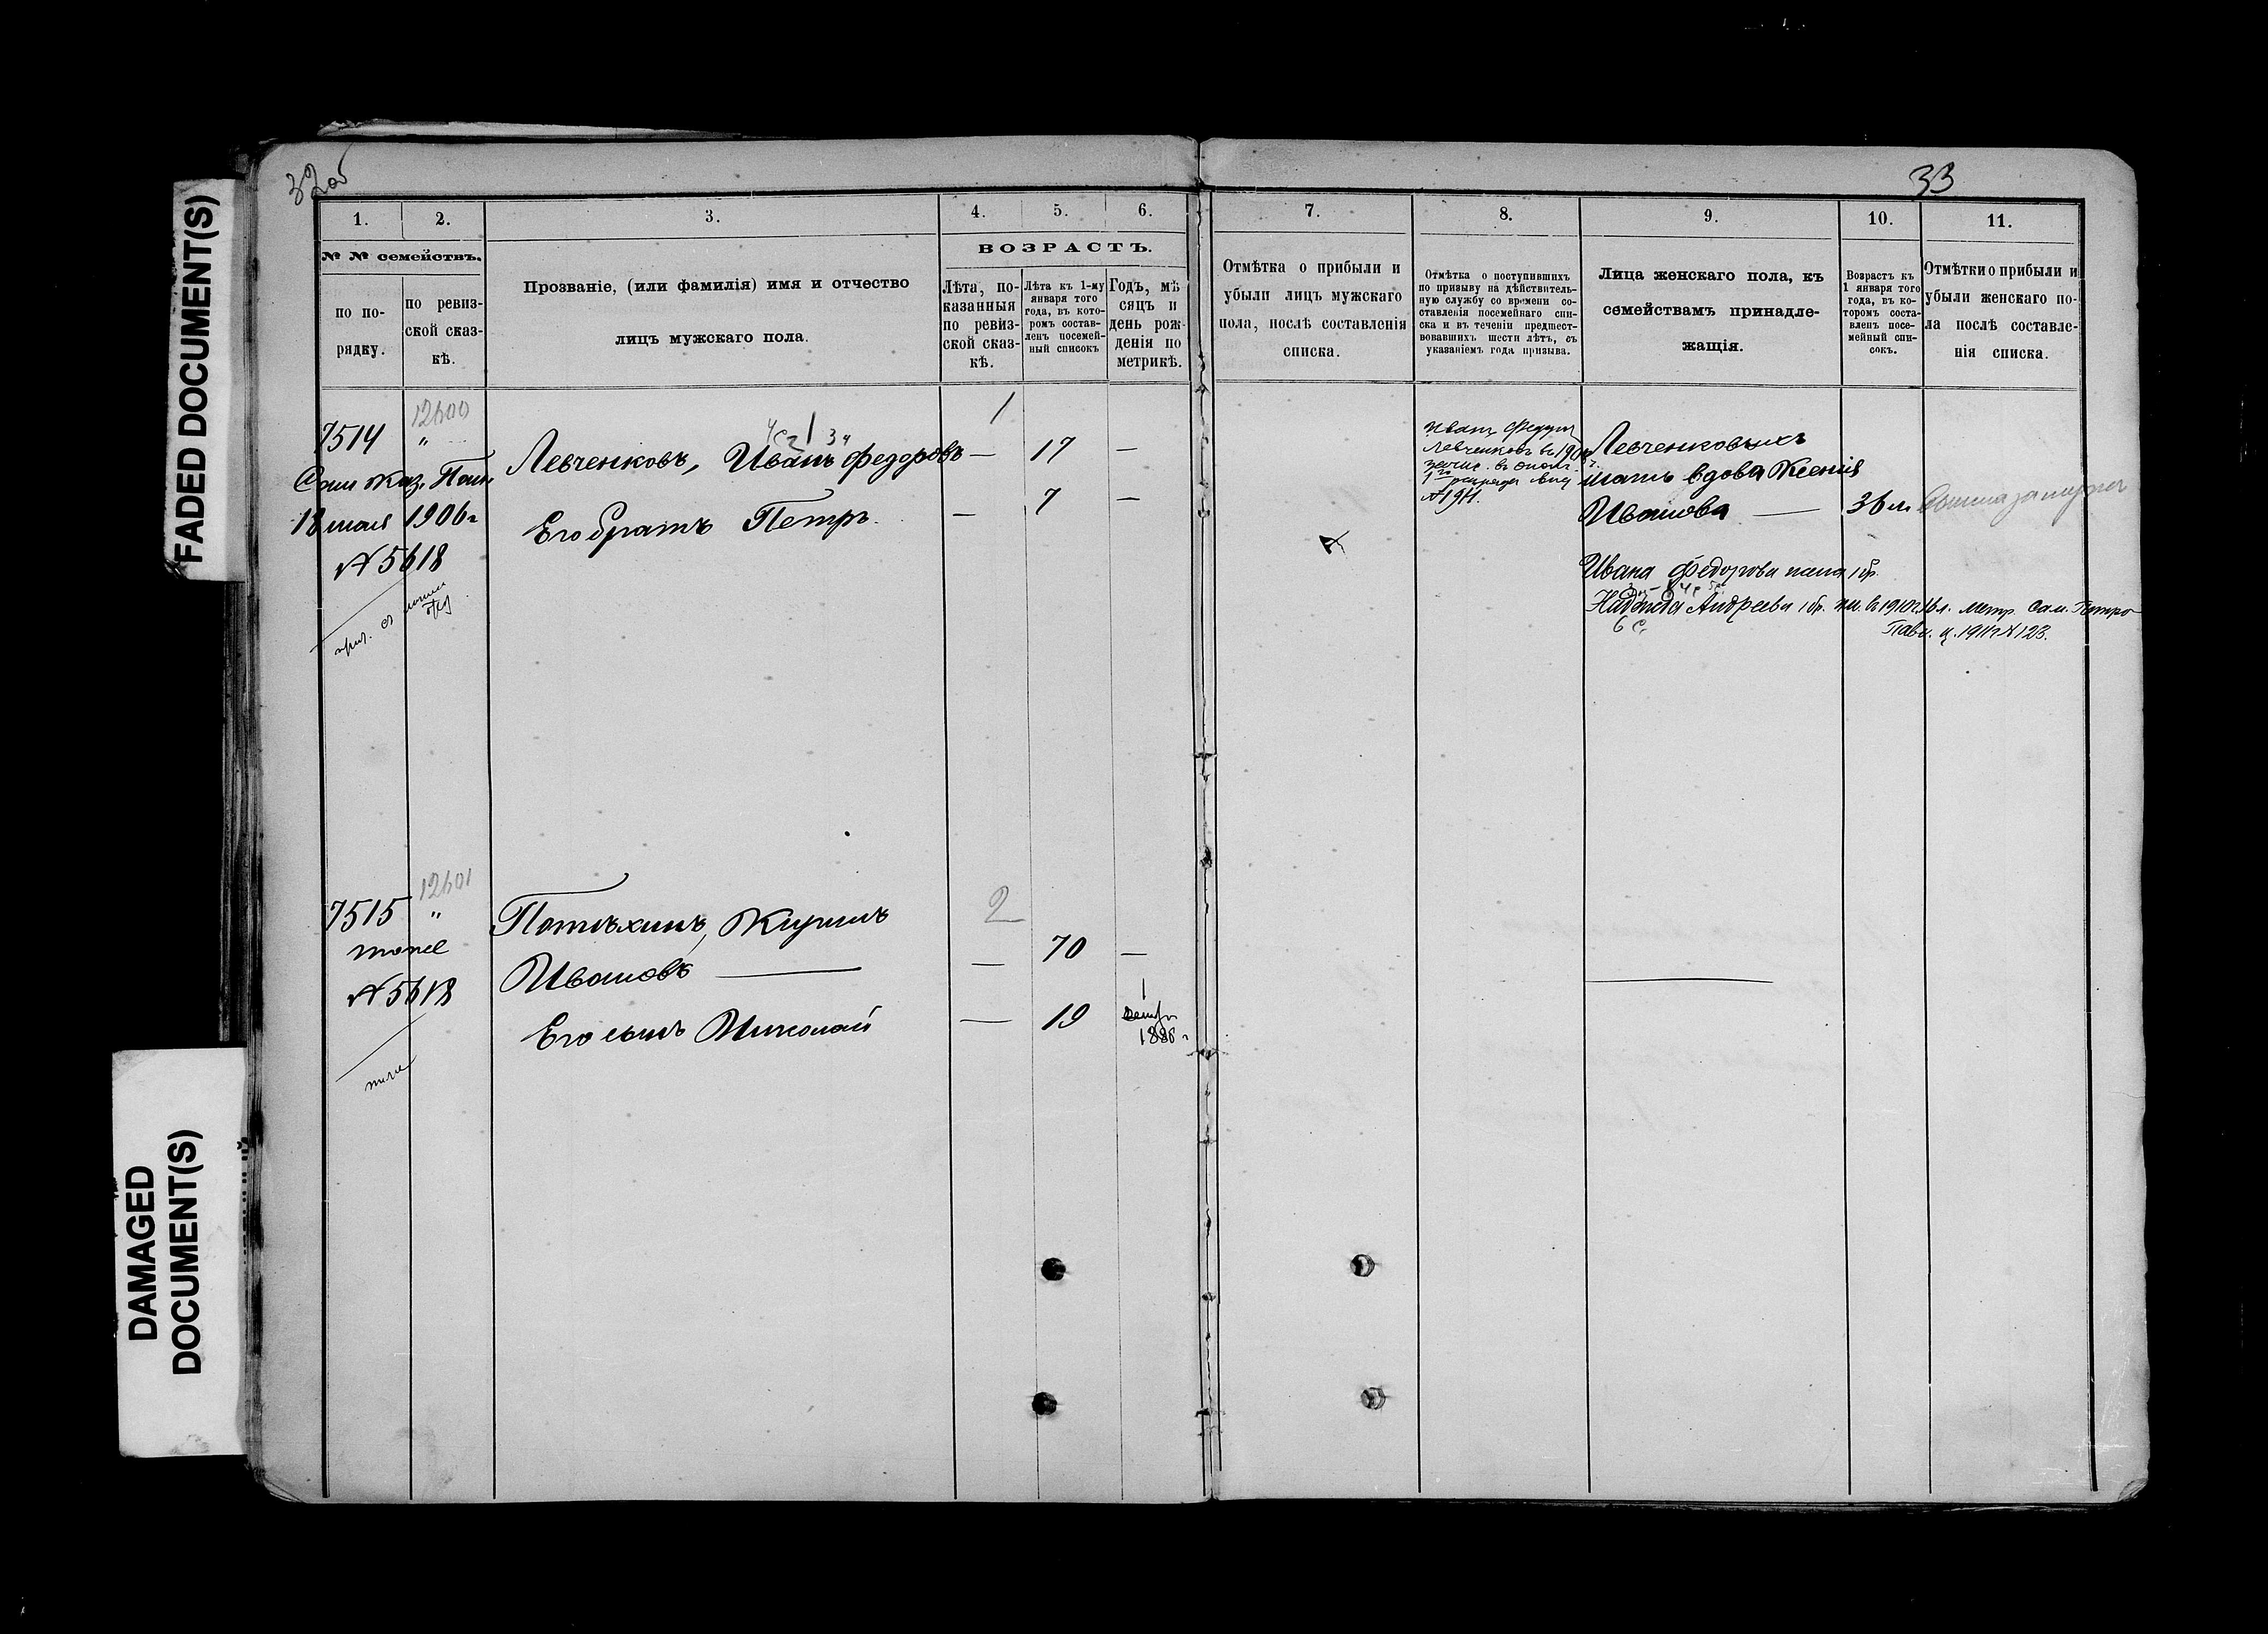 FADED DOCUMENT(S)
DAMAGED
DOCUMENT(S)
32об
33
1.
2.
3.
4.
5.
6.
7.
8.
9.
10.
11.
№ № семействъ.
по по-
рядку.
по ревиз-
ской сказ-
кѣ.
Прозваніе, (или фамилія) имя и отчество
лицъ мужскаго пола.
ВОЗРАСТЪ.
Лѣта, по-
казанныя
по ревиз-
ской сказ-
кѣ.
Лѣта къ 1-му
января того
года, въ кото-
ромъ состав-
ленъ посемей-
ный списокъ
Годъ, мѣ
сяцъ и
день рож-
денія по
метрикѣ.
Отмѣтка о прибыли и
убыли лицъ мужскаго
пола, послѣ составленія
списка.
Отмѣтка о поступившихъ
по призыву на дѣйствитель-
ную службу со времени со-
ставленія посемейнаго спи-
ска и въ теченіи предшест-
вовавшихъ шести лѣтъ, съ
указаніемъ года призыва.
Лица женскаго пола, къ
семействамъ принадле-
жащія.
Возрастъ къ
1 января того
года, въ ко-
торомъ соста-
вленъ посе-
мейный спи-
сокъ.
Отмѣтки о прибыли и
убыли женскаго по-
ла послѣ составле-
нія списка.
12600
7514 "
Сам Каз. Пал.
18 мая 1906 г
№ 5618
1
Левченковъ, Иванъ Федоровъ — 17 —
Его братъ Петръ. — 7 —
Иванъ Федоръ
Левченковъ въ 190
зачис. въ опол.
1го разряда
№ 1911.
Левченковыхъ
мать вдова Ксенія
Иванова — 36 л. вышла замужъ
Ивана Федорова жена 1 бр.
Надежда Андреева 1 бр. въ 1910 г. 16 л. метр. Сам. Петро
Павл. ц. 1911 г № 123.
6 с.
12601
7515 "
тоже
№ 5618
тоже
2
Потѣхинъ, Кирилъ
Ивановъ — — 70 —
Его сынъ Николай — 19
1
1886 г